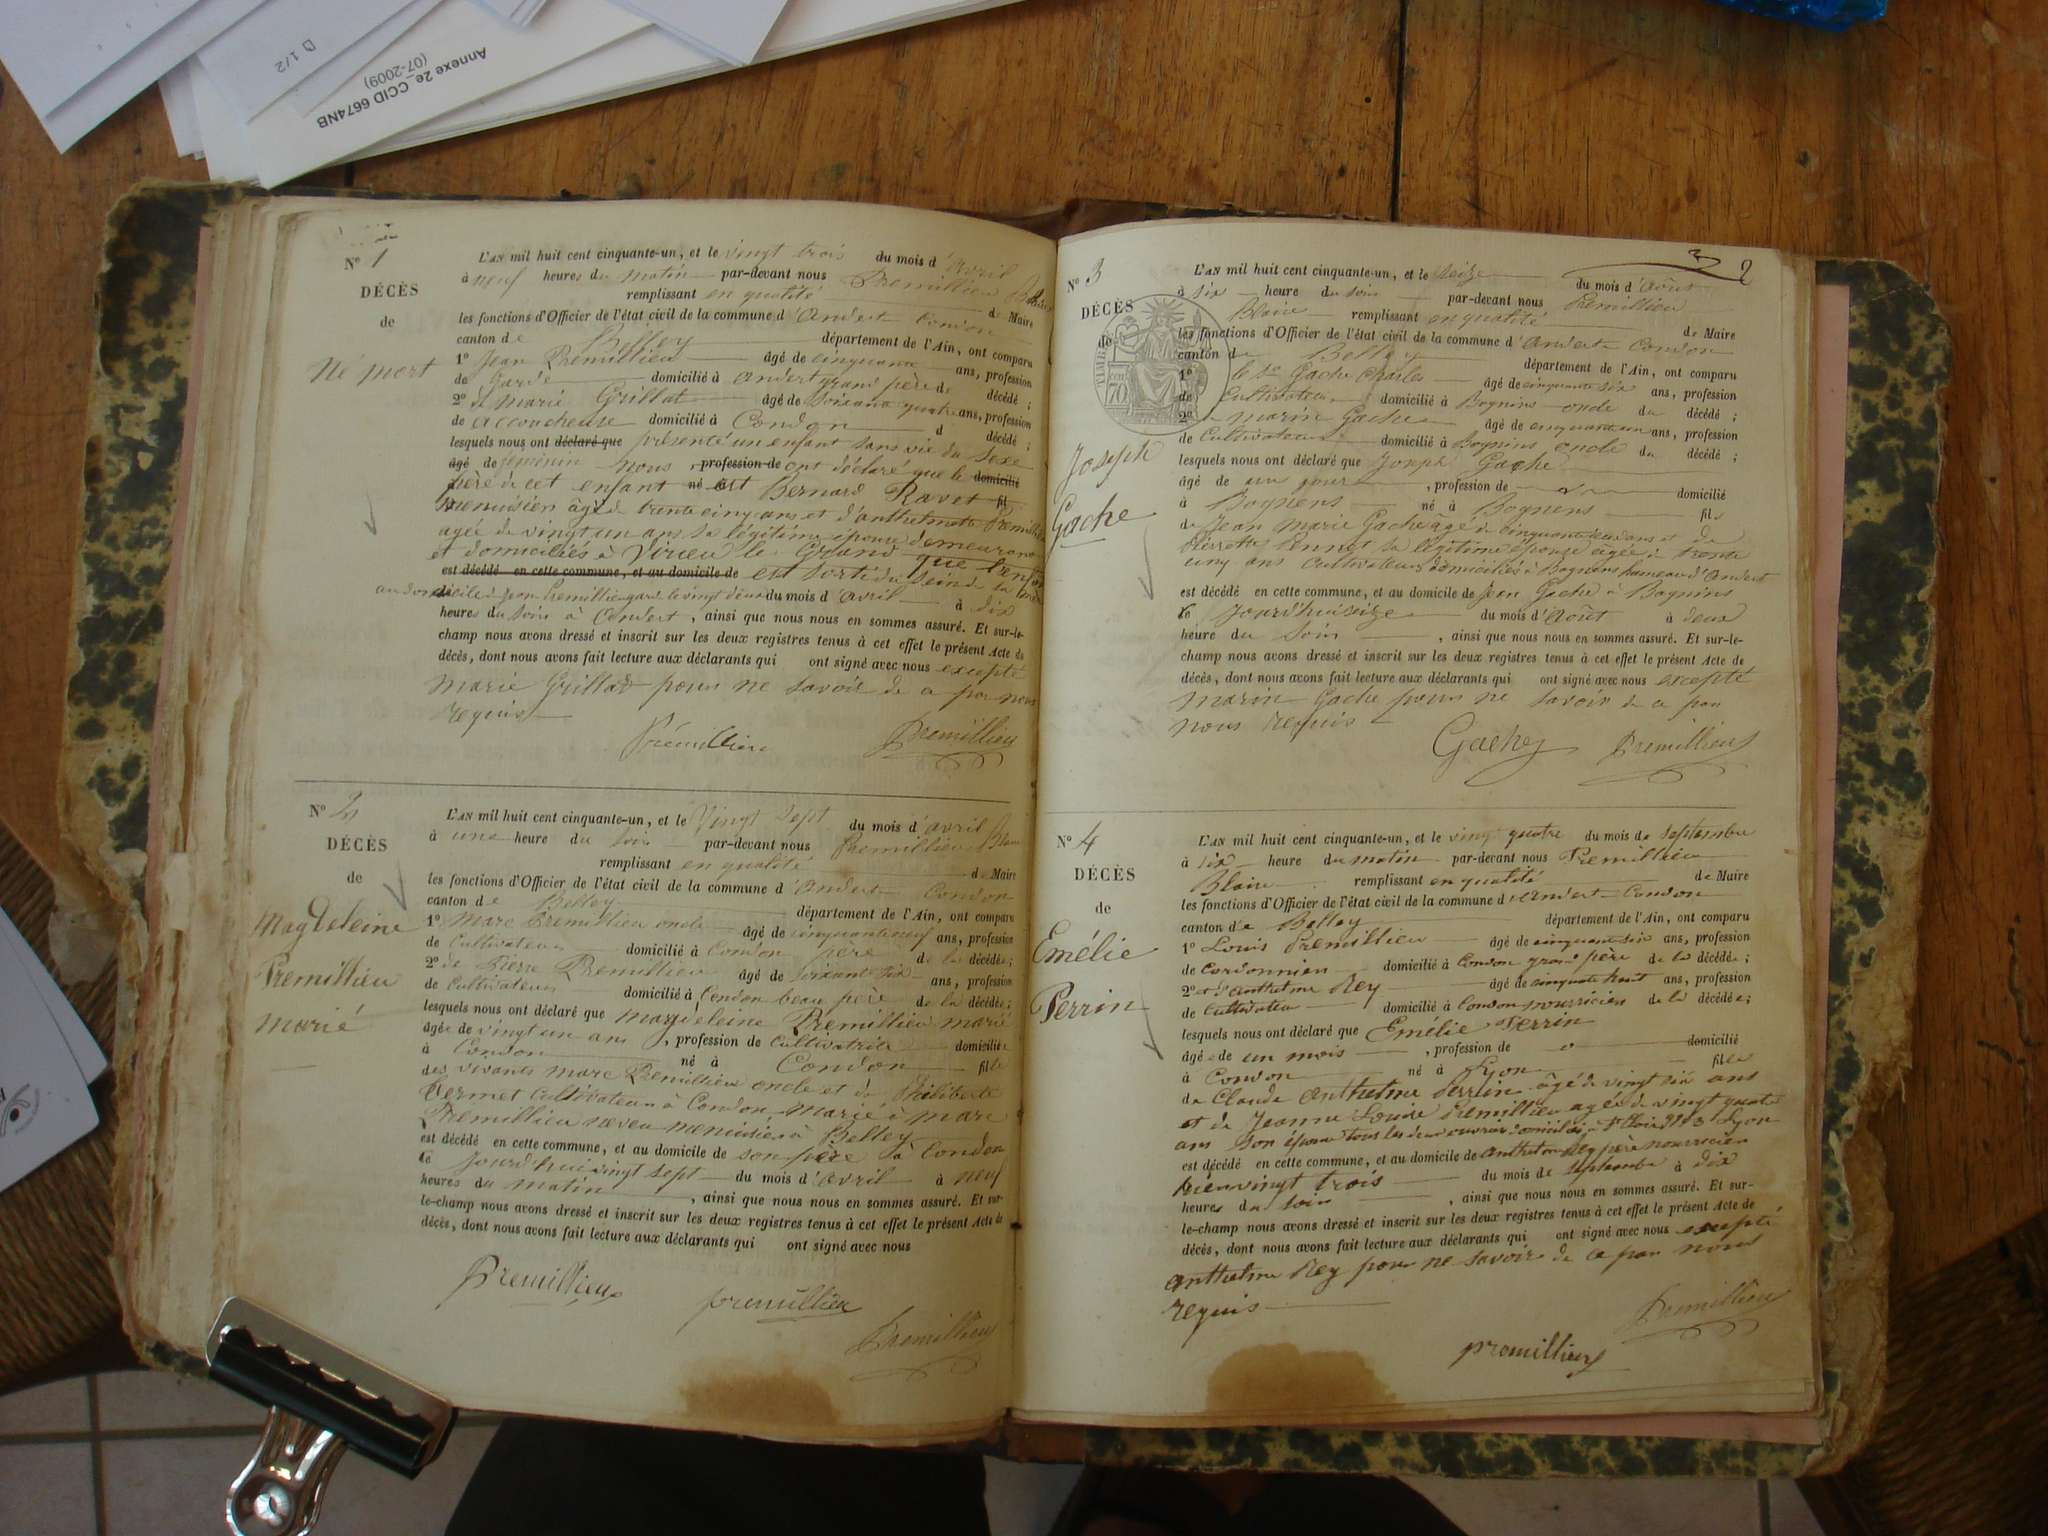 1/2
Annexe 2e CCID 6674NB
(07-2009)
N° 1
DÉCÈS
de
Né mort
L'AN mil huit cent cinquante-un, et le vingt trois du mois d'avril
à neuf heures du matin par-devant nous Premillieu Blaise
remplissant en qualité de Maire
les fonctions d'Officier de l'état civil de la commune d'Andert Condon
canton de Belley département de l'Ain, ont comparu
1° Jean Premillieu âgé de cinquante ans, profession
de garde domicilié à Andert grand père de décédé ;
2° et marie Grillat âgé de soixante quatre ans, profession
de accoucheuse domicilié à Condon d décédé ;
lesquels nous ont déclaré que présenté un enfant sans vie du sexe
âgé de feminin nous profession de ont déclaré que le domicilié
père de cet enfant né est Bernard Ravet fil
menuisier âgé de trente cinq ans et d'anthelmette Premillieu
agée de vingt un ans sa légitime épouse demeurant
et domiciliés à Virieu le Grand que l'enfant
est décédé en cette commune, et au domicile de est sorti du sein de sa mère
au domicile de jean Premillieu garde le vingt deux du mois d'avril à dix
heures du soir à Andert, ainsi que nous nous en sommes assuré. Et sur-le-
champ nous avons dressé et inscrit sur les deux registres tenus à cet effet le présent Acte de
décès, dont nous avons fait lecture aux déclarants qui ont signé avec nous excepté
marie Grillat pour ne savoir de ce par nous
requis
Prémillieu Premillieu
N° 2
DÉCÈS
de
Magdeleine
Premillieu
marié
L'AN mil huit cent cinquante-un, et le Vingt Sept du mois d'avril
à une heure du soir par-devant nous Premillieu Blaise
remplissant en qualité de Maire
les fonctions d'Officier de l'état civil de la commune d'Andert Condon
canton de Belley département de l'Ain, ont comparu
1° Marc Premillieu oncle âgé de cinquante neuf ans, profession
de Cultivateur domicilié à Condon père de la décédée ;
2° de Pierre Premillieu âgé de soixante six ans, profession
de Cultivateur domicilié à Condon beau père de la décédée ;
lesquels nous ont déclaré que magdeleine Premillieu marié
âgée de vingt un ans, profession de Cultivatrice domiciliée
à Condon né à Condon fille
des vivants marc Premillieu oncle et de Philiberte
Vermet Cultivateur à Condon marié à marc
Premillieu neveu menuisier à Belley
est décédé en cette commune, et au domicile de son père à Condon
le jourd'hui vingt sept du mois d'avril à neuf
heures du matin, ainsi que nous nous en sommes assuré. Et sur-
le-champ nous avons dressé et inscrit sur les deux registres tenus à cet effet le présent Acte de
décès, dont nous avons fait lecture aux déclarants qui ont signé avec nous
Premillieu premillieu
Premillieu
3 2
N° 3
DÉCÈS
de
TIMBRE
70
Joseph
Gache
L'AN mil huit cent cinquante-un, et le seize du mois d'août
à six heure du soir par-devant nous Premillieu
Blaise remplissant en qualité de Maire
les fonctions d'Officier de l'état civil de la commune d'Andert Condon
canton de Belley département de l'Ain, ont comparu
1° le sr Gache Charles âgé de cinquante six ans, profession
de Cultivateur domicilié à Bognins oncle du décédé ;
2° marin Gache âgé de cinquante un ans, profession
de Cultivateur domicilié à Bognins oncle du décédé ;
lesquels nous ont déclaré que Joseph Gache
âgé de un jour, profession de domicilié
à Bognens né à Bognens fils
de Jean Marie Gache agé de cinquante ans et de
Pierrette Pennet sa légitime épouse agée de trente
cinq ans Cultivateurs domiciliés à Bognens hameau d'Andert
est décédé en cette commune, et au domicile de Jean Gache à Bognins
le jourd'hui seize du mois d'Août à deux
heure du soir, ainsi que nous nous en sommes assuré. Et sur-le-
champ nous avons dressé et inscrit sur les deux registres tenus à cet effet le présent Acte de
décès, dont nous avons fait lecture aux déclarants qui ont signé avec nous excepté
marin Gache pour ne savoir de ce par
nous requis
Gache Premillieu
N° 4
DÉCÈS
de
Emélie
Perrin
L'AN mil huit cent cinquante-un, et le vingt quatre du mois de septembre
à six heure du matin par-devant nous Premillieu
Blaise remplissant en qualité de Maire
les fonctions d'Officier de l'état civil de la commune d'Andert Condon
canton de Belley département de l'Ain, ont comparu
1° Louis Premillieu âgé de cinquante six ans, profession
de cordonnier domicilié à Condon grand père de la décédée ;
2° et d'anthelme Rey âgé de cinquante huit ans, profession
de Cultivateur domicilié à Condon nourricier de la décédée ;
lesquels nous ont déclaré que Emélie Perrin
âgée de un mois, profession de domicilié
à Condon né à Lyon fille
de Claude Anthelme Perrin âgé de vingt six ans
et de Jeanne Louise Premillieu agée de vingt quatre
ans son épouse tous les deux ouvriers domiciliés à Lyon
est décédé en cette commune, et au domicile de anthelme Rey père nourricier
hier vingt trois du mois de septembre à dix
heures du soir, ainsi que nous nous en sommes assuré. Et sur-
le-champ nous avons dressé et inscrit sur les deux registres tenus à cet effet le présent Acte de
décès, dont nous avons fait lecture aux déclarants qui ont signé avec nous excepté
anthelme Rey pour ne savoir de ce par nous
requis
Premillieu
premillieu